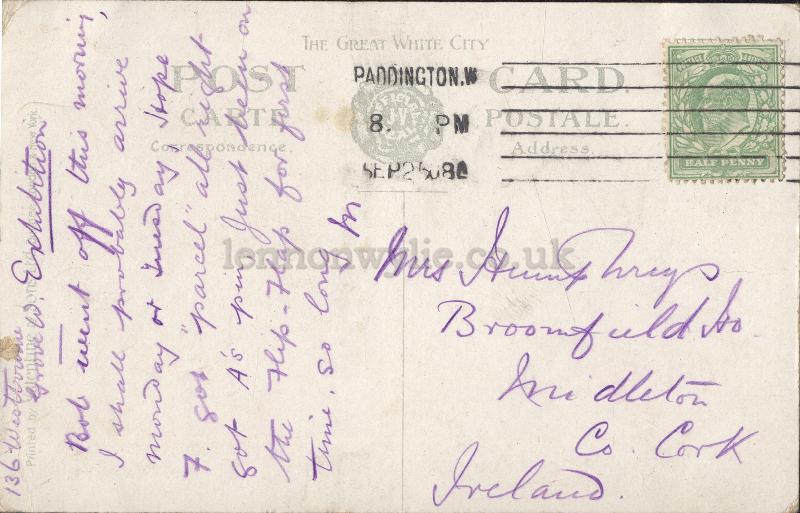 THE GREAT WHITE CITY
POST CARD.
CARTE POSTALE.
Correspondence. Address.
PADDINGTON.W
8. PM
SEP 25 08
HALF PENNY
136 Westbourne
Grove W. Exhibition
Bob went off this morning,
I shall probably arrive
monday or tuesday. Hope
F. got "parcel" all right
got A's pin. Just been on
the Flip-Flap for first
time. So long, M
Mrs Humphreys
Broomfield Ho.
Midleton
Co. Cork
Ireland.
lennonwylie.co.uk
Printed by